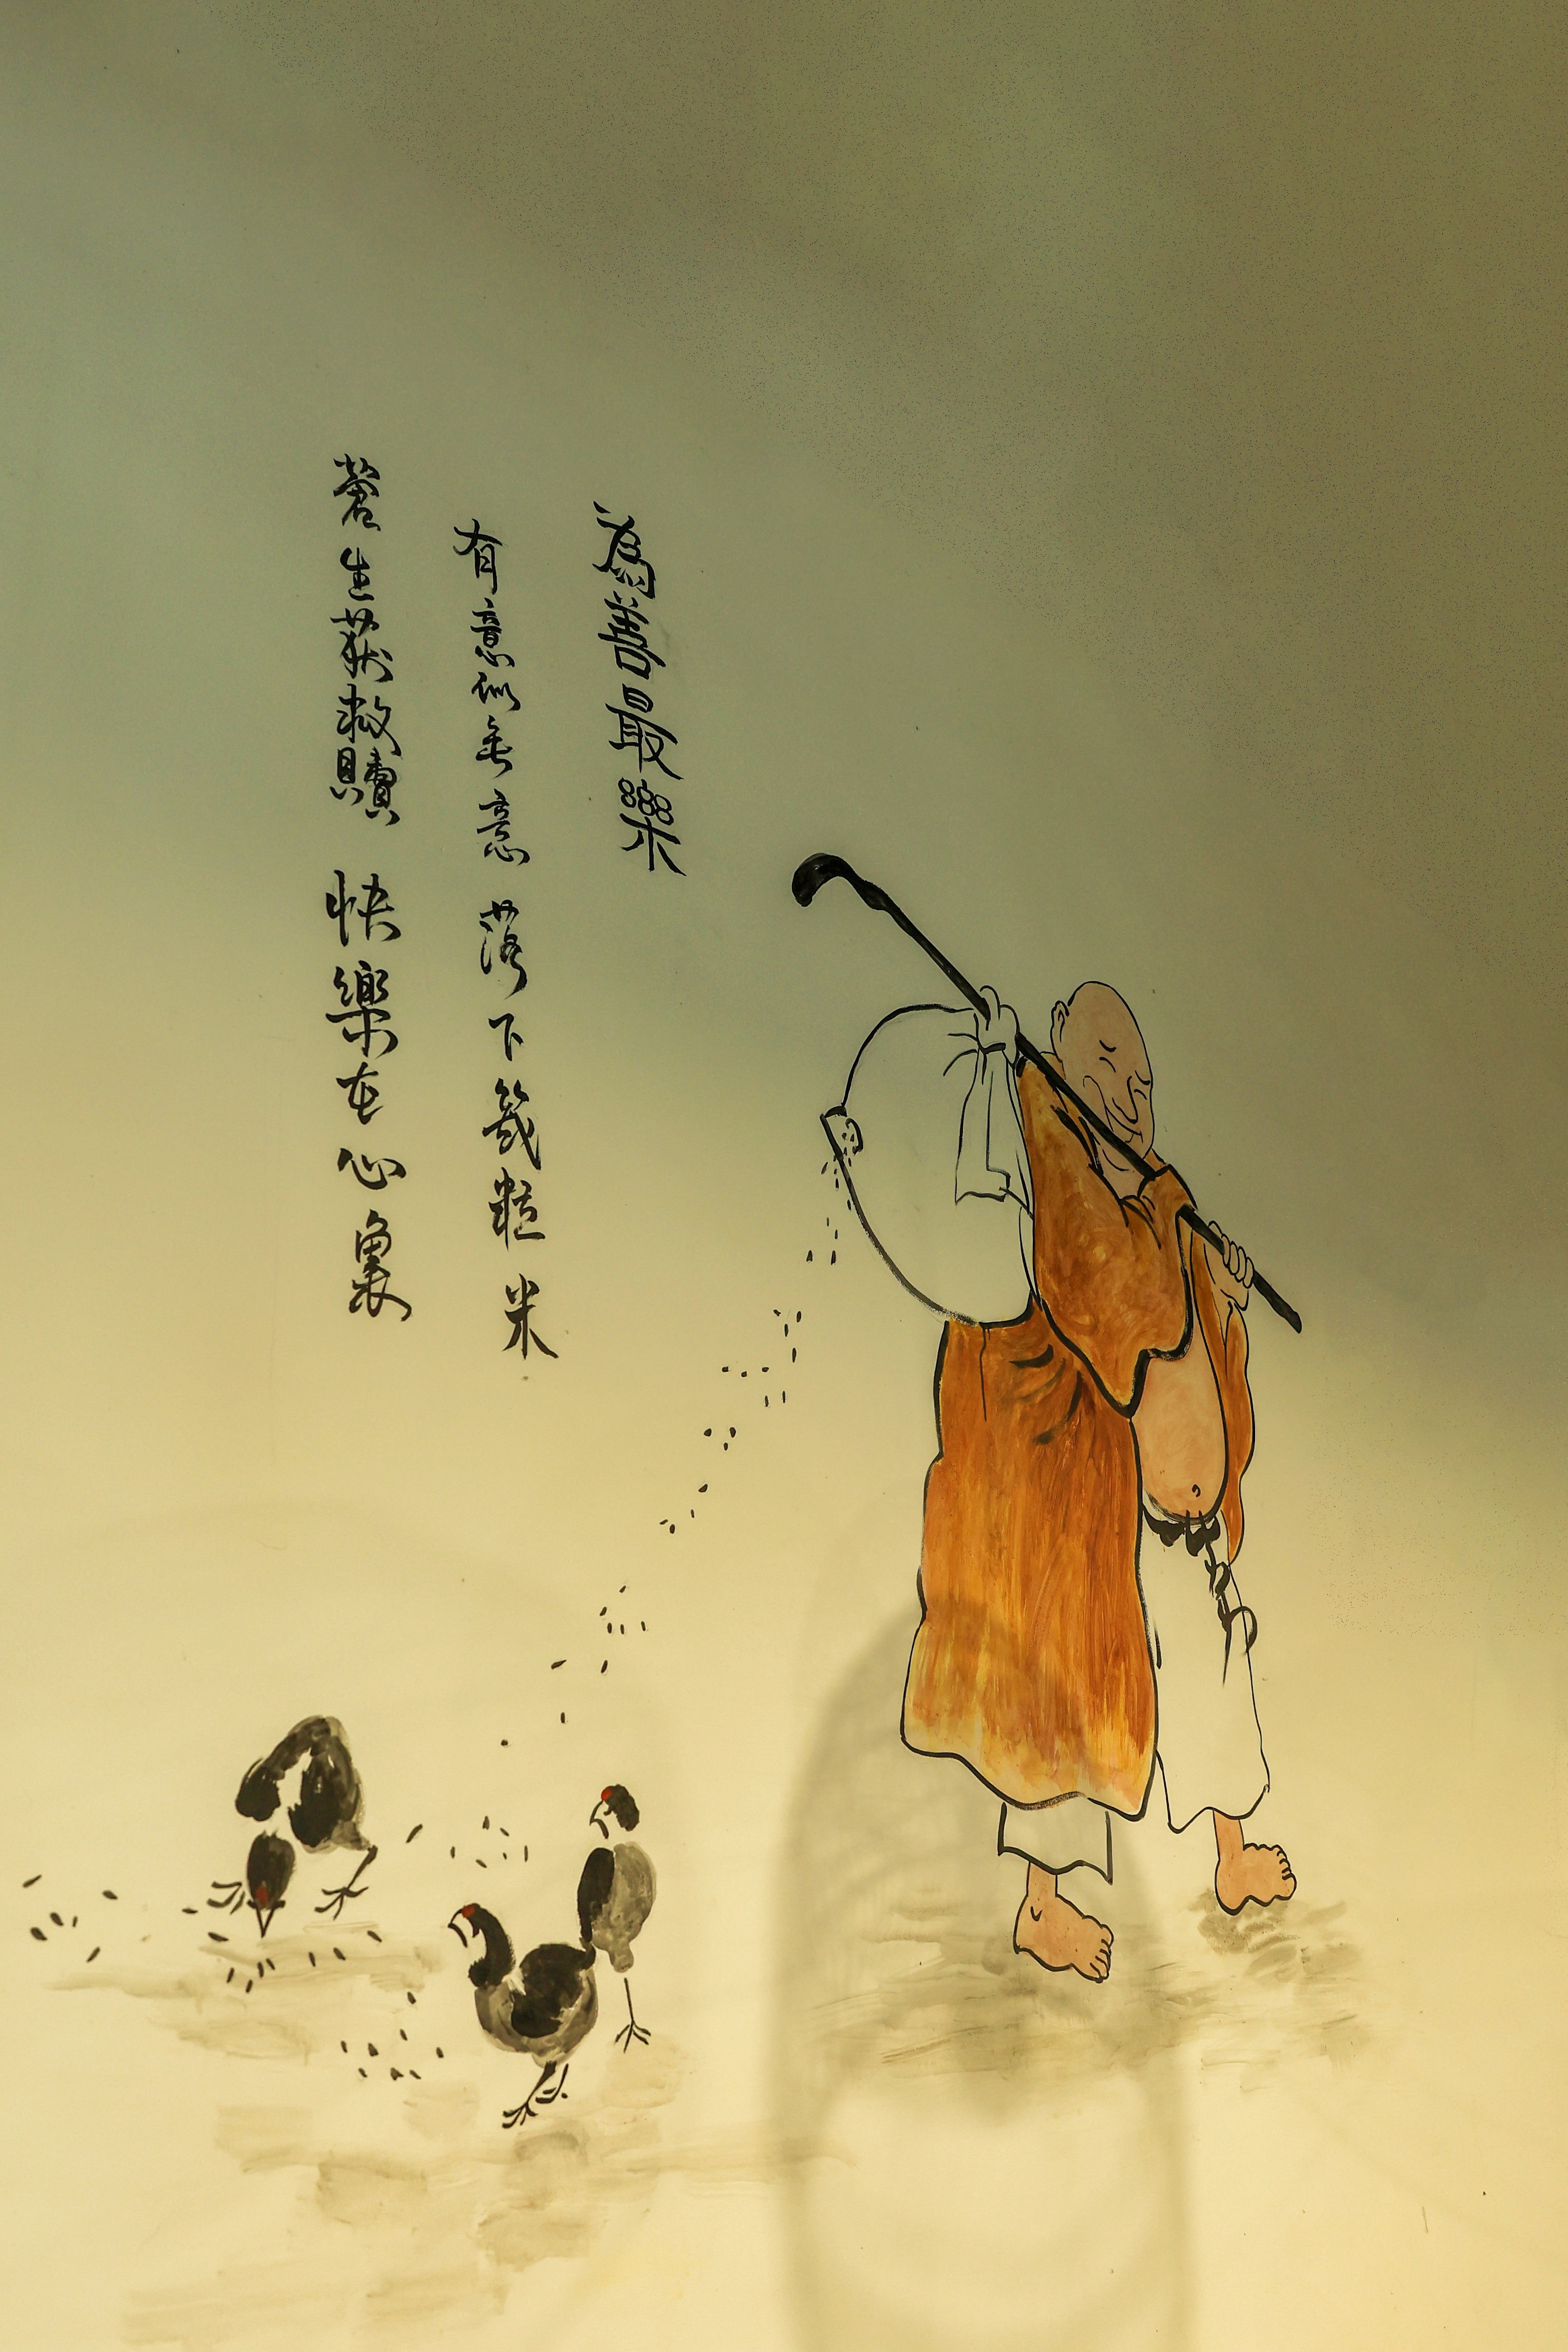 為善最樂
有意似無意 落下幾粒米
蒼生获救贖 快樂在心裏